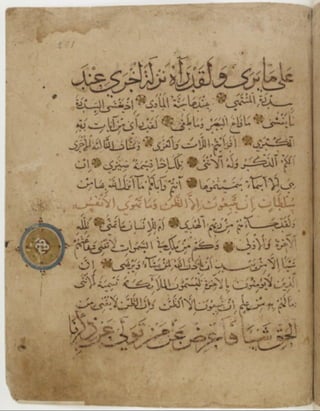 على ما يرى ولقد رآه نزلة أخرى عند
سدرة المنتهى عندها جنة المأوى إذ يغشى السدرة
ما يغشى ما زاغ البصر وما طغى لقد رأى من آيات ربه
الكبرى أفرأيتم اللات والعزى ومناة الثالثة الأخرى
ألكم الذكر وله الأنثى تلك إذا قسمة ضيزى إن
هي إلا أسماء سميتموها أنتم وآباؤكم ما أنزل الله بها من
سلطان إن يتبعون إلا الظن وما تهوى الأنفس
ولقد جاءهم من ربهم الهدى أم للإنسان ما تمنى فلله
الآخرة والأولى وكم من ملك في السموات لا تغني شفاعتهم
شيئا إلا من بعد أن يأذن الله لمن يشاء ويرضى إن
الذين لا يؤمنون بالآخرة ليسمون الملائكة تسمية الأنثى
وما لهم به من علم إن يتبعون إلا الظن وإن الظن لا يغني من
الحق شيئا فأعرض عن من تولى عن ذكرنا